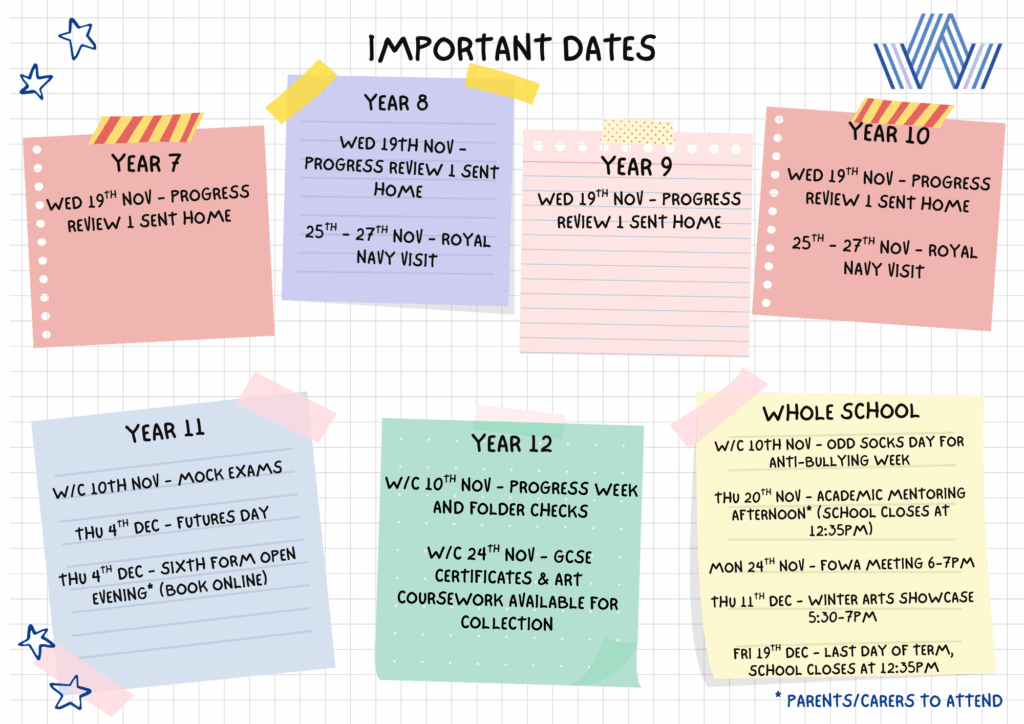 IMPORTANT DATES
YEAR 7
WED 19TH NOV - PROGRESS
REVIEW 1 SENT HOME
YEAR 8
WED 19TH NOV -
PROGRESS REVIEW 1 SENT
HOME
25TH - 27TH NOV - ROYAL
NAVY VISIT
YEAR 9
WED 19TH NOV - PROGRESS
REVIEW 1 SENT HOME
YEAR 10
WED 19TH NOV - PROGRESS
REVIEW 1 SENT HOME
25TH - 27TH NOV - ROYAL
NAVY VISIT
YEAR 11
W/C 10TH NOV - MOCK EXAMS
THU 4TH DEC - FUTURES DAY
THU 4TH DEC - SIXTH FORM OPEN
EVENING* (BOOK ONLINE)
YEAR 12
W/C 10TH NOV - PROGRESS WEEK
AND FOLDER CHECKS
W/C 24TH NOV - GCSE
CERTIFICATES & ART
COURSEWORK AVAILABLE FOR
COLLECTION
WHOLE SCHOOL
W/C 10TH NOV - ODD SOCKS DAY FOR
ANTI-BULLYING WEEK
THU 20TH NOV - ACADEMIC MENTORING
AFTERNOON* (SCHOOL CLOSES AT
12:35PM)
MON 24TH NOV - FOWA MEETING 6-7PM
THU 11TH DEC - WINTER ARTS SHOWCASE
5:30-7PM
FRI 19TH DEC - LAST DAY OF TERM,
SCHOOL CLOSES AT 12:35PM
* PARENTS/CARERS TO ATTEND